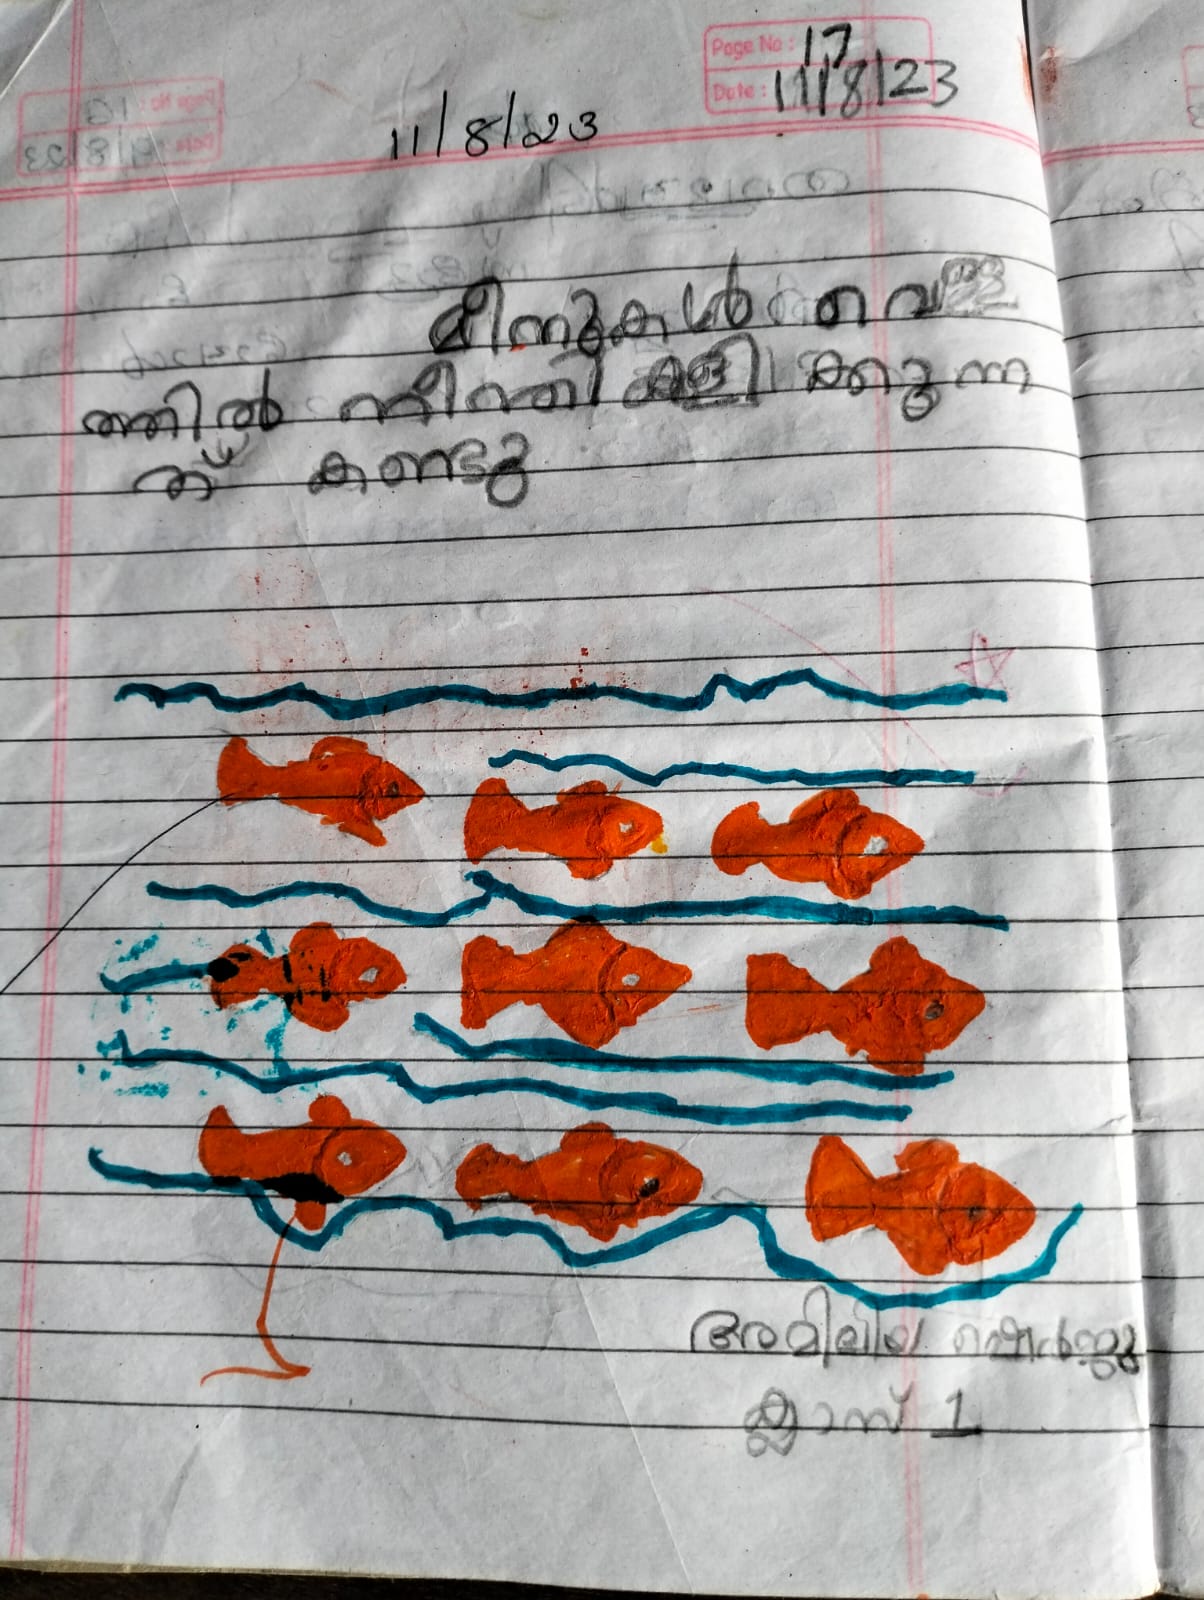 Page No: 17
Date: 11/8/23
11/8/23
മീനുകൾ വെള്ള
ത്തിൽ നീന്തി കളിക്കുന്ന
ത് കണ്ടു
ക്ലാസ് 1